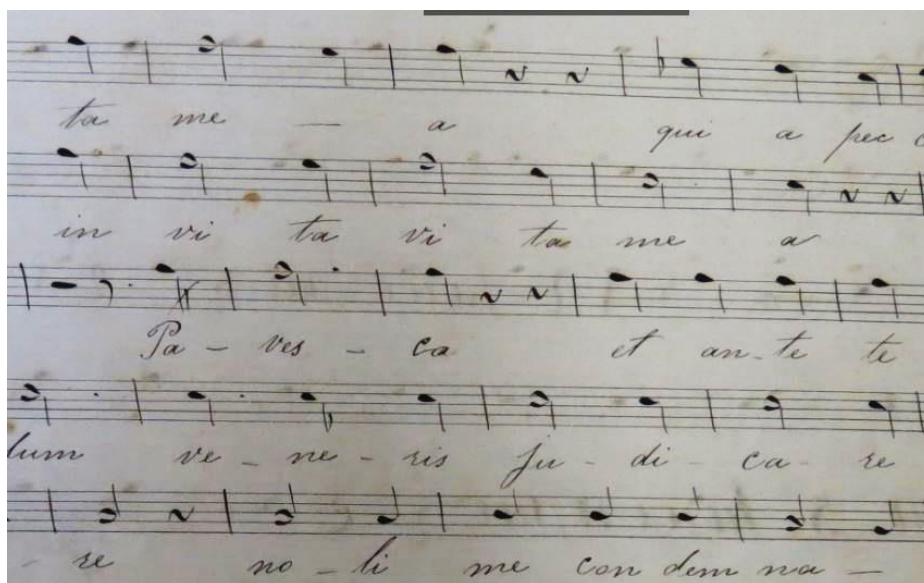 ta me — a qui a pec
in vi ta vi ta me a
Pa – ves – ca et an – te te
dum ve – ne – ris ju – di – ca – re
– re no – li me con dem na –